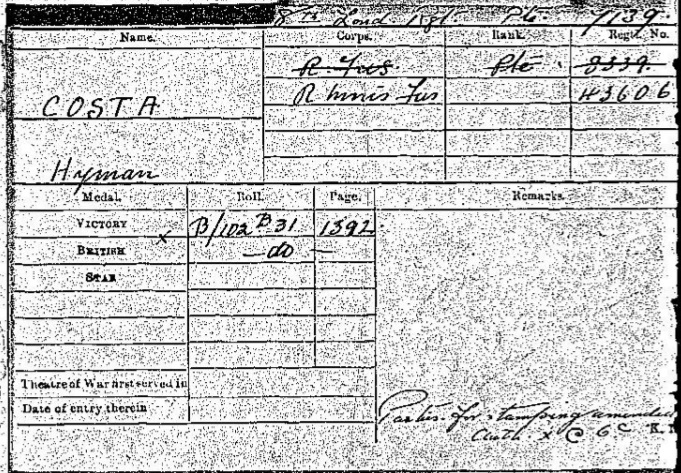 8th Lond Rgt. Pte. 7139.
Name. Corps. Rank. Regtl. No.
R. Fus. Pte 8339.
COSTA R Innis Fus 43606
Hyman
Medal. Roll. Page. Remarks.
VICTORY x B/102 B31 1392.
BRITISH — do —
STAR
Theatre of War first served in
Date of entry therein
Partics. for stamping amended
Auth. x C 6 C K.